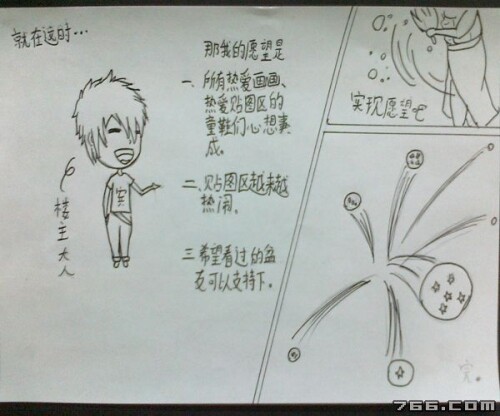 就在这时…
那我的愿望是
一、所有热爱画画、
热爱贴图区的
童鞋们心想事
成。
二、贴图区越来越
热闹。
三、希望看过的盆
友可以支持下。
楼主大人
实现愿望吧
完。
766.com